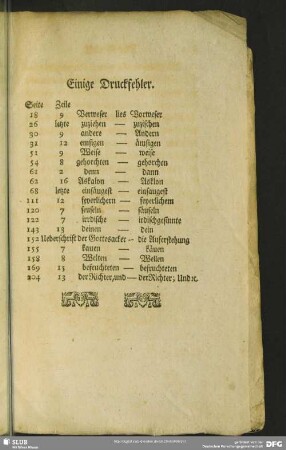 Einige Druckfehler.
Seite Zeile
18 9 Verweser lies Vorweser
26 letzte zuziehen — zuzischen
30 9 andere — Andern
31 12 emsigen — ämsigen
51 9 Weise — waise
54 8 gehorchten — gehorchen
61 2 denn — dann
62 16 Askalon — Asklon
68 letzte einsäugest — einsaugest
111 12 feyerlichern — feyerlichem
120 7 seufeln — säuseln
122 7 irrdische — irdischgesinnte
143 13 deinen — dein
152 Ueberschrift der Gottesacker — die Auferstehung
155 7 kauen — käuen
158 8 Welten — Wellen
169 13 befeuchteten — befruchteten
204 13 der Richter, und — der Richter; Und ꝛc.
SLUB
DFG